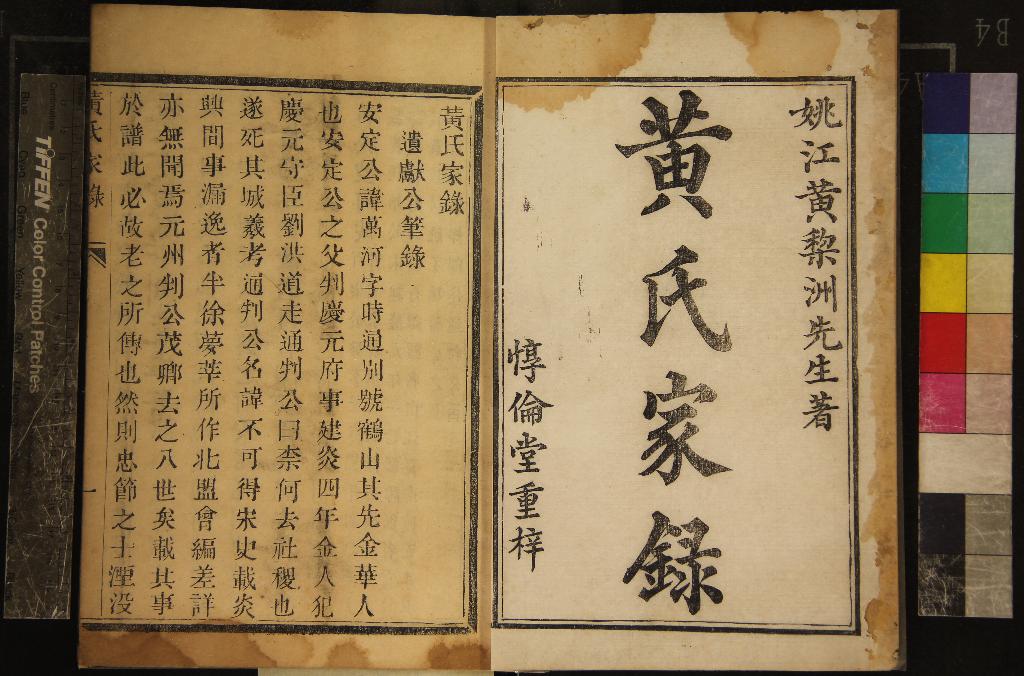 姚江黄黎洲先生著
黄氏家録
惇倫堂重梓
黃氏家錄
遺獻公筆錄
安定公諱萬河字時通別號鶴山其先金華人
也安定公之父判慶元府事建炎四年金人犯
慶元守臣劉洪道走通判公曰柰何去社稷也
遂死其城羲考通判公名諱不可得宋史載炎
興間事漏逸者半徐夢莘所作北盟會編差詳
亦無聞焉元州判公茂卿去之八世矣載其事
於譜此必故老之所傳也然則忠節之士湮没
黃氏家錄
一
TIFFEN Color Control Patches
B4